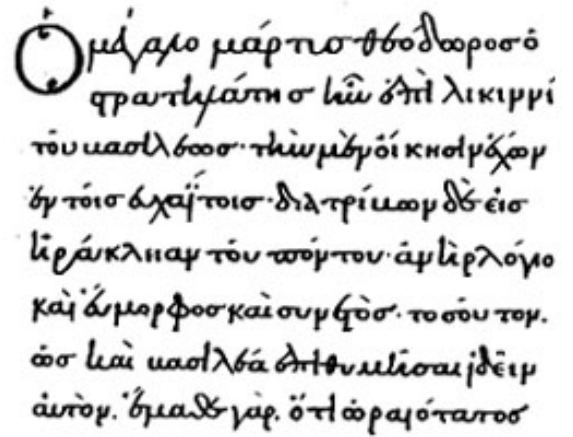 Ὁ μέγασ μάρτισ θεόδωροσ ὁ
στρατιλάτησ ἦν ἐπὶ λικιννί
του βασιλέωσ· τὴν μὲν οἴκησιν ἔχων
ἐν τοῖσ εὐχαΐτοισ· διατρίβων δὲ εἰσ
ἡράκλειαν τοῦ πόντου· ἀνὴρ λόγιο
καὶ εὔμορφοσ καὶ συνετὸσ· τοσοῦτον.
ὡσ καὶ βασιλέα ἐπιθυμῆσαι ἰδεῖν
αὐτὸν. ἔμαθε γὰρ. ὅτι ὡραιότατοσ